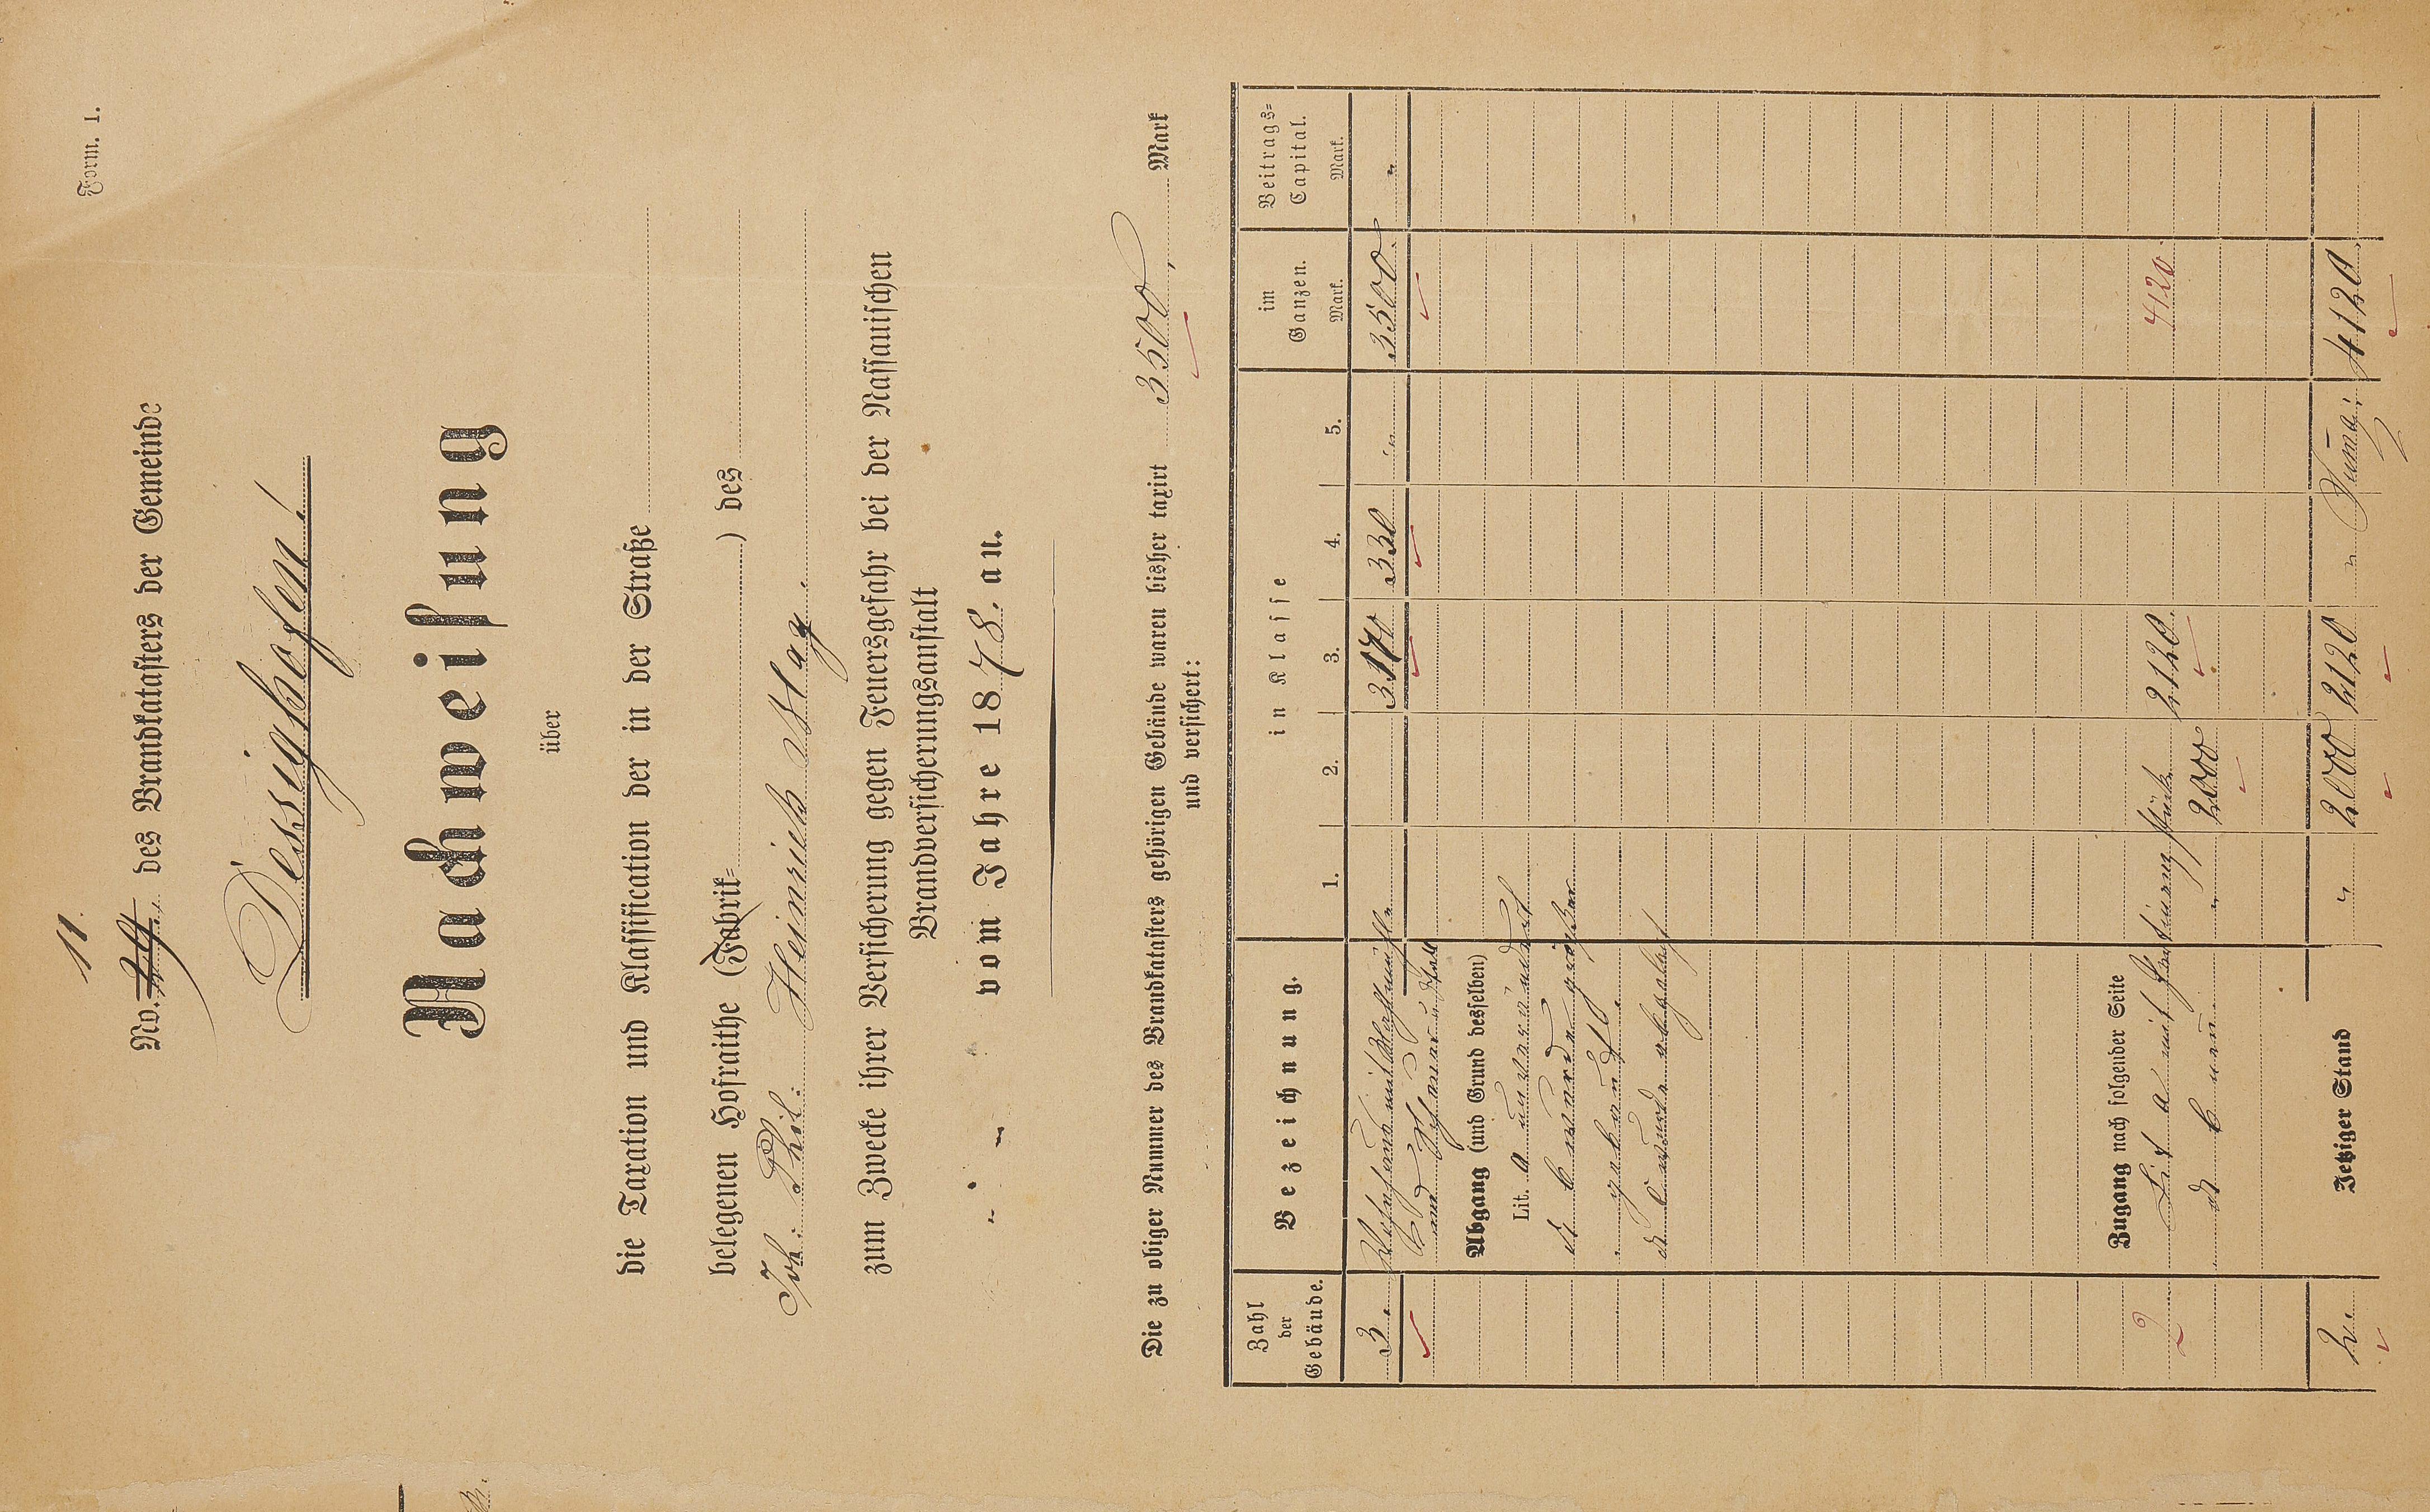 Form. 1.
11.
No. 24. des Brandkatasters der Gemeinde
Dessighofen!
Nachweisung
über
die Taxation und Klassification der in der Straße
belegenen Hofraithe (Fabrik=) des
Joh: Phil: Heinrich May.
zum Zwecke ihrer Versicherung gegen Feuersgefahr bei der Nassauischen
Brandversicherungsanstalt
vom Jahre 1878. an.
Die zu obiger Nummer des Brandkatasters gehörigen Gebäude waren bisher taxirt 3500, Mark
und versichert:
Zahl der Gebäude.
Bezeichnung.
in Klasse
1. 2. 3. 4. 5.
im Ganzen. Mark.
Beitrags=Capital. Mark.
3. Wohnhaus mit 3170 330 " 3500. "
und Scheuer u. Stall
Abgang (und Grund desselben)
Lit. a unverändert
dt b wurde größer
gebaut.
dt c wurde abgelegt
Zugang nach folgender Seite
2 Lit a mit 2120. 4120.
dt b neu " 2000
Jetziger Stand
2. " 2000 2120 " Summa: 4120.